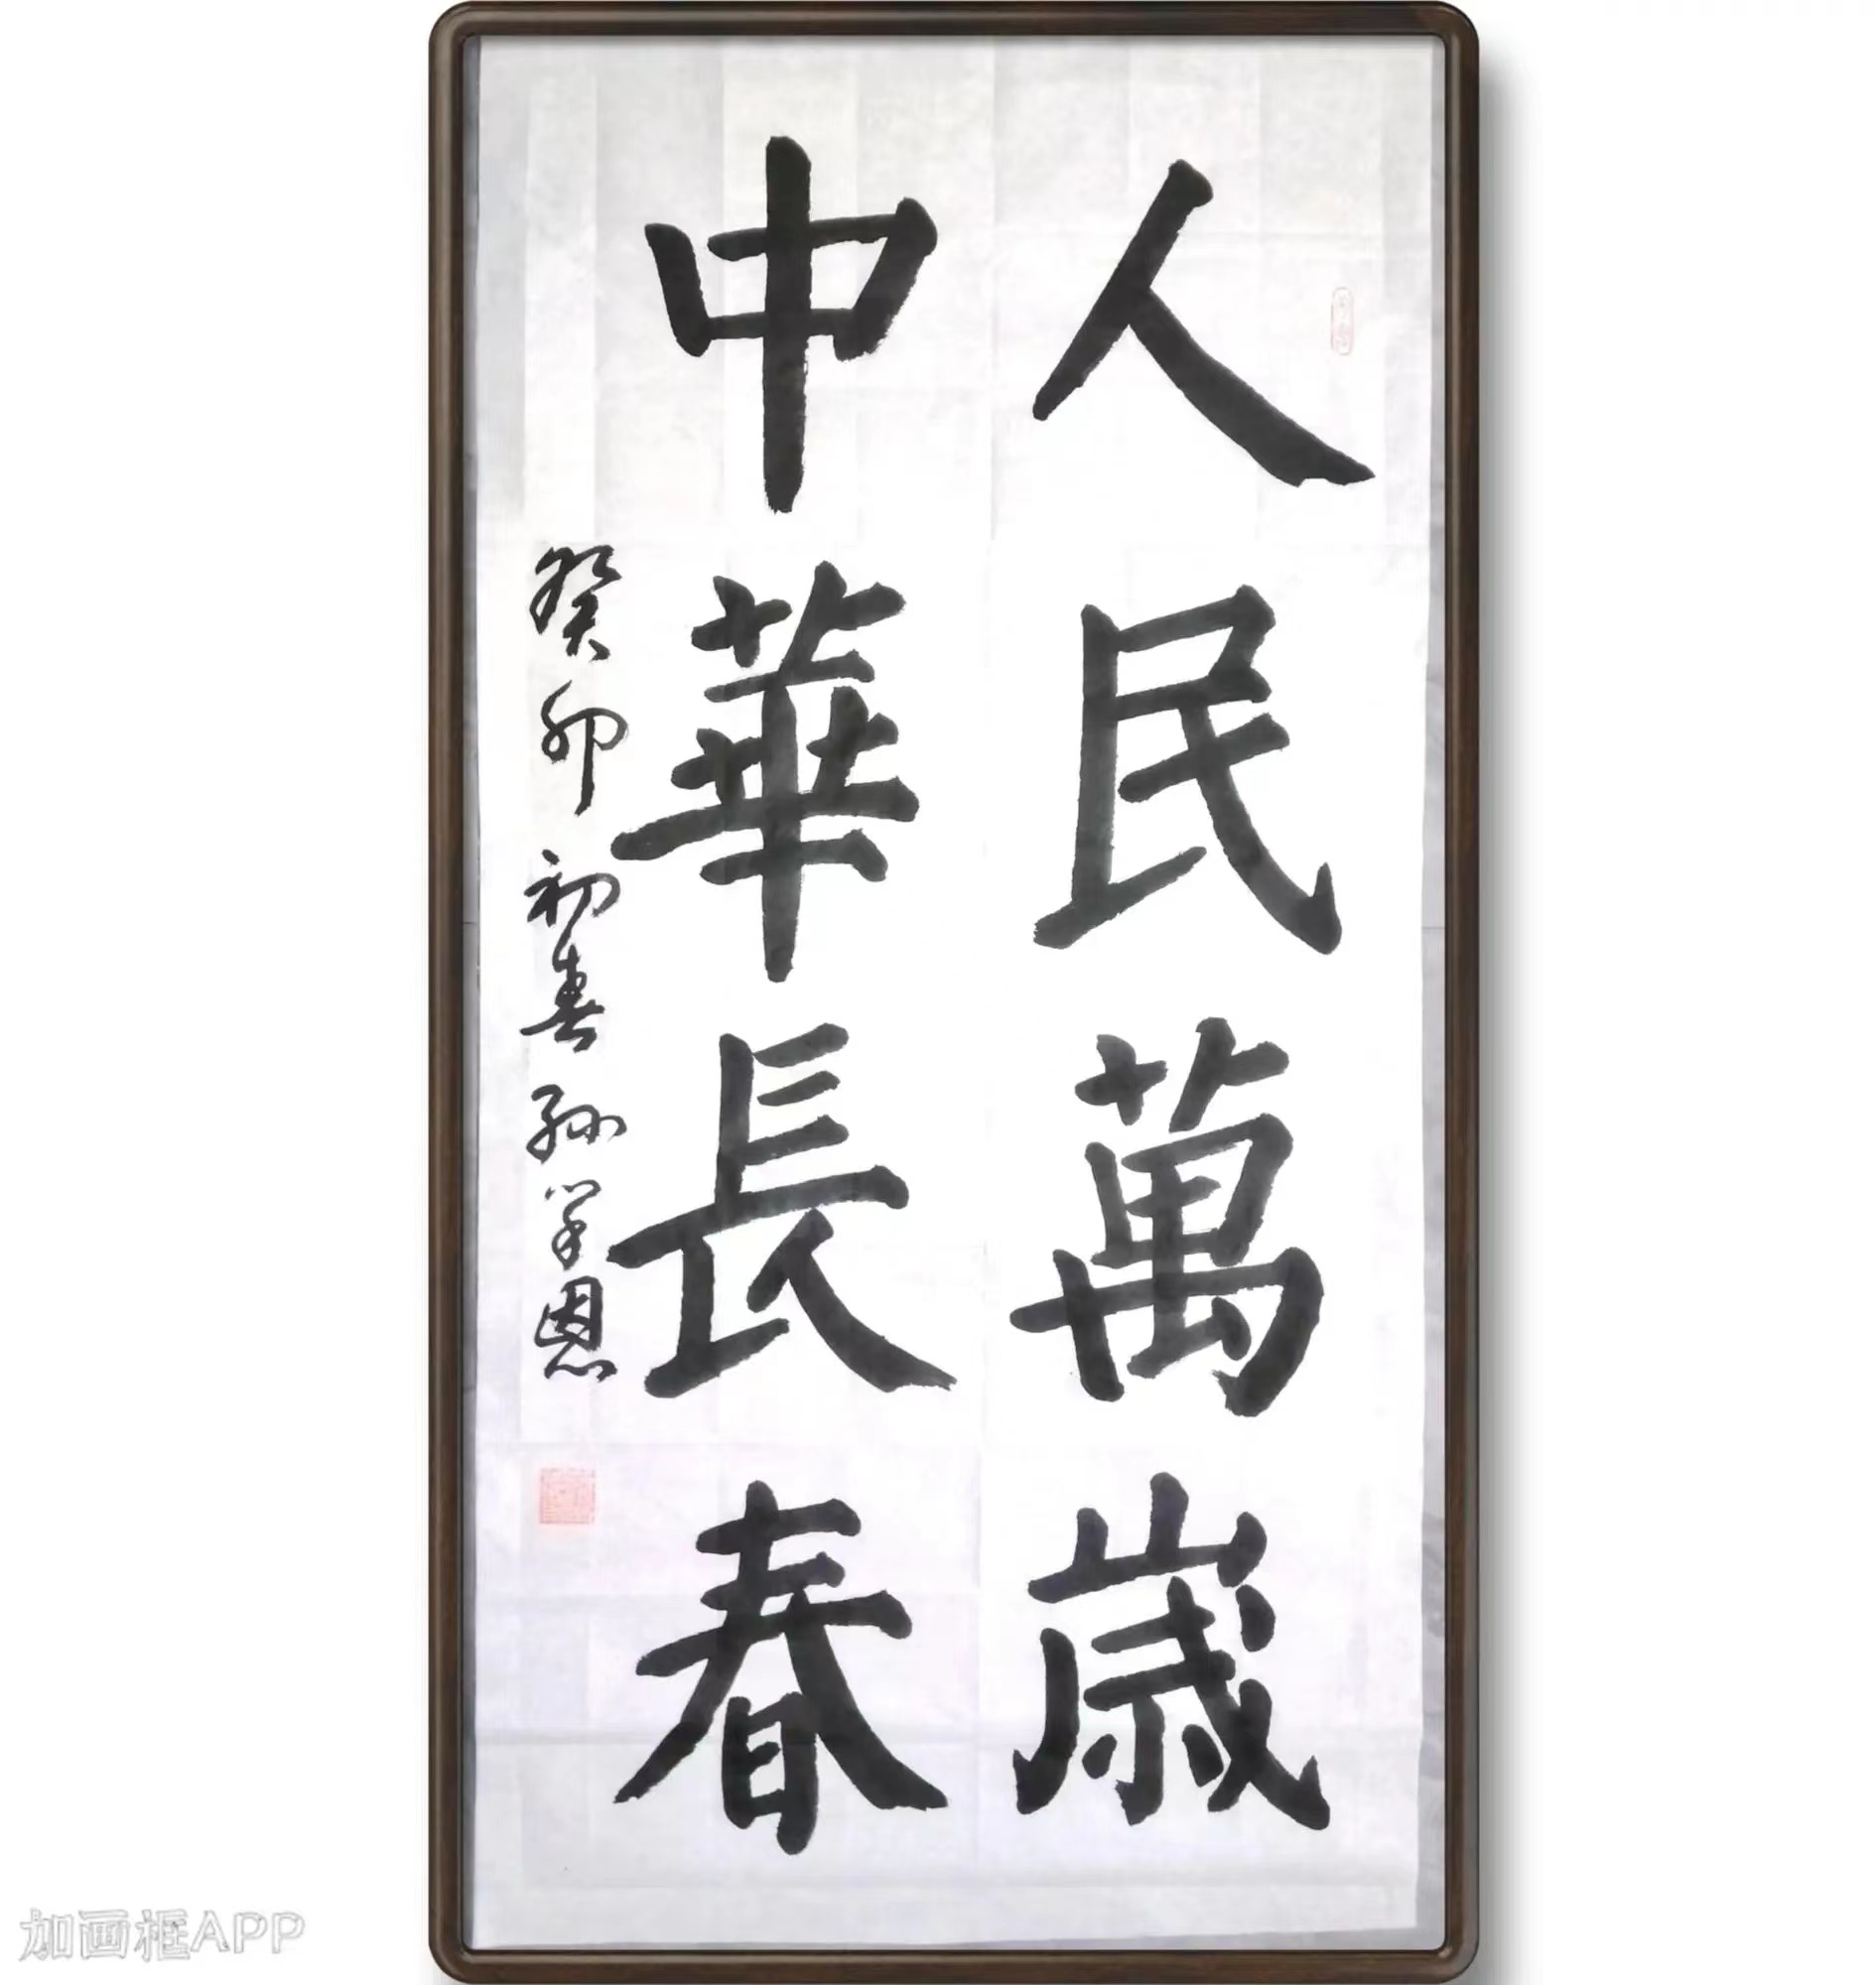 人民萬歲
中華長春
癸卯初春孙学恩
加画框APP